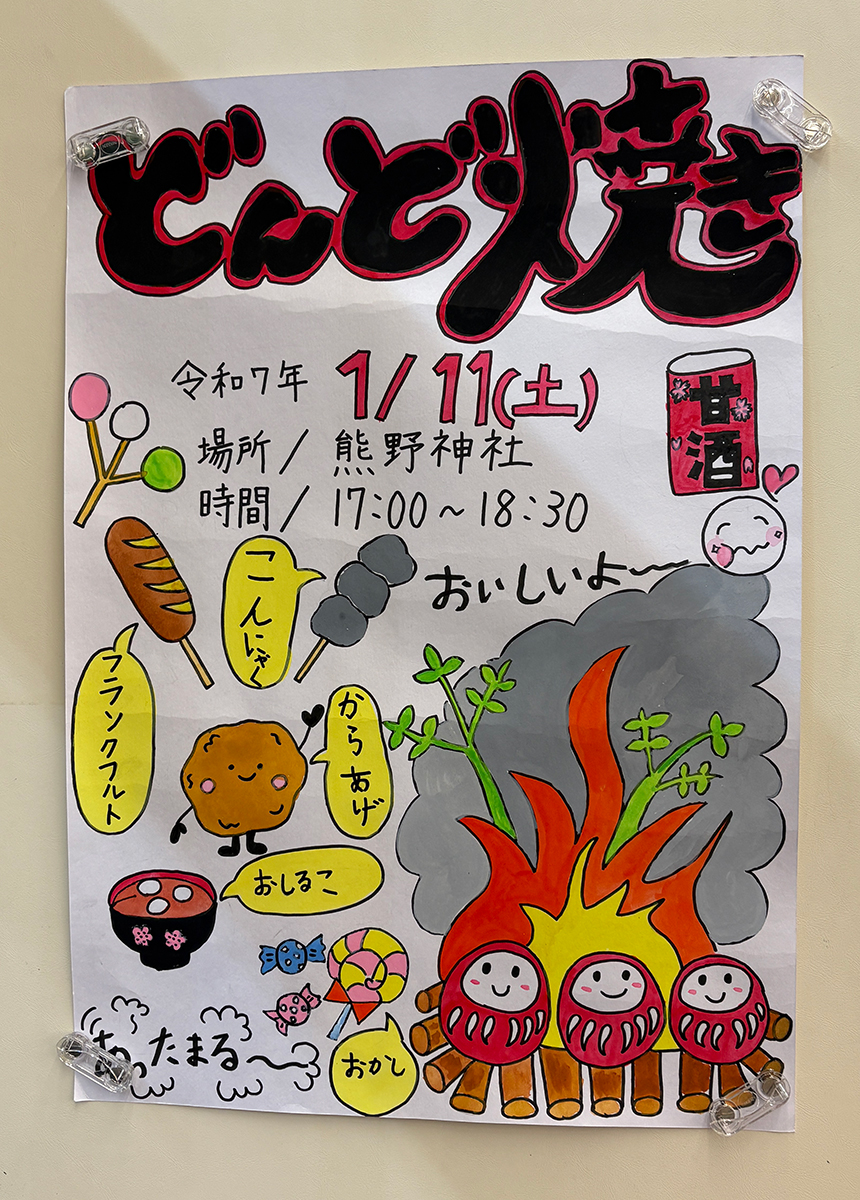 どんど焼き
令和7年 1/11(土)
場所/ 熊野神社
時間/ 17:00~18:30
甘酒
おいしいよ〜
こんにゃく
フランクフルト
からあげ
おしるこ
おかし
あったまる〜